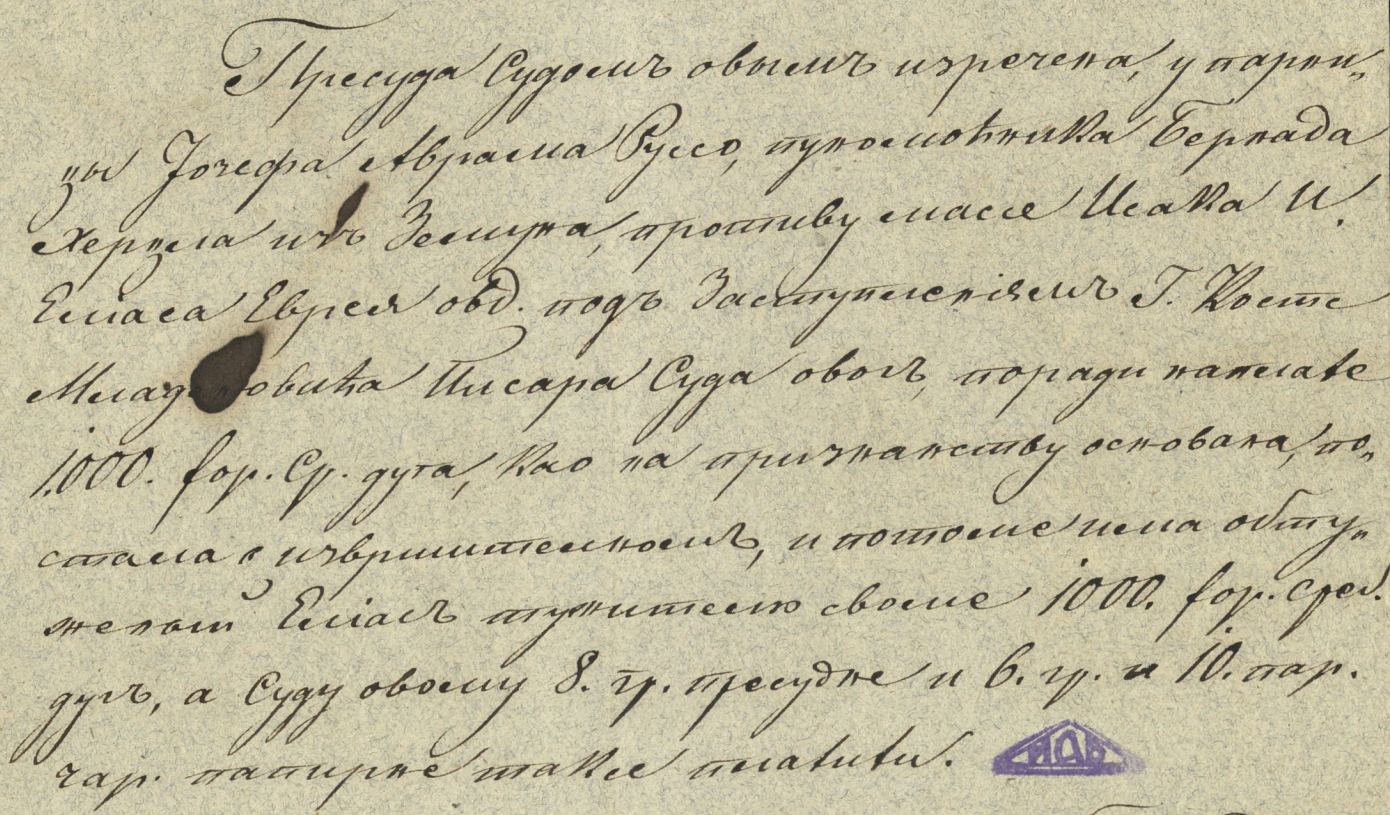 Пресуда Судомъ овымъ изречена, у парни„
цы Јозефа Аврама Руссо, пуномоћника Бернада
Херцла изъ Земуна, противу массе Исака И.
Еліаса Еврея овд. подъ Заступленіемъ Г. Косте
Писара Суда овогъ, поради наплате
1000. фор. Ср. дуга, као на признанству основана, по„
стала є извршителномъ, и потоме има обту„
женый Еліасъ тужителю своме 1000. фор. среб.
дугъ, а Суду овому 8. гр. пресудне и 6. гр. и 10. пар.
чар. папирне таксе платити.